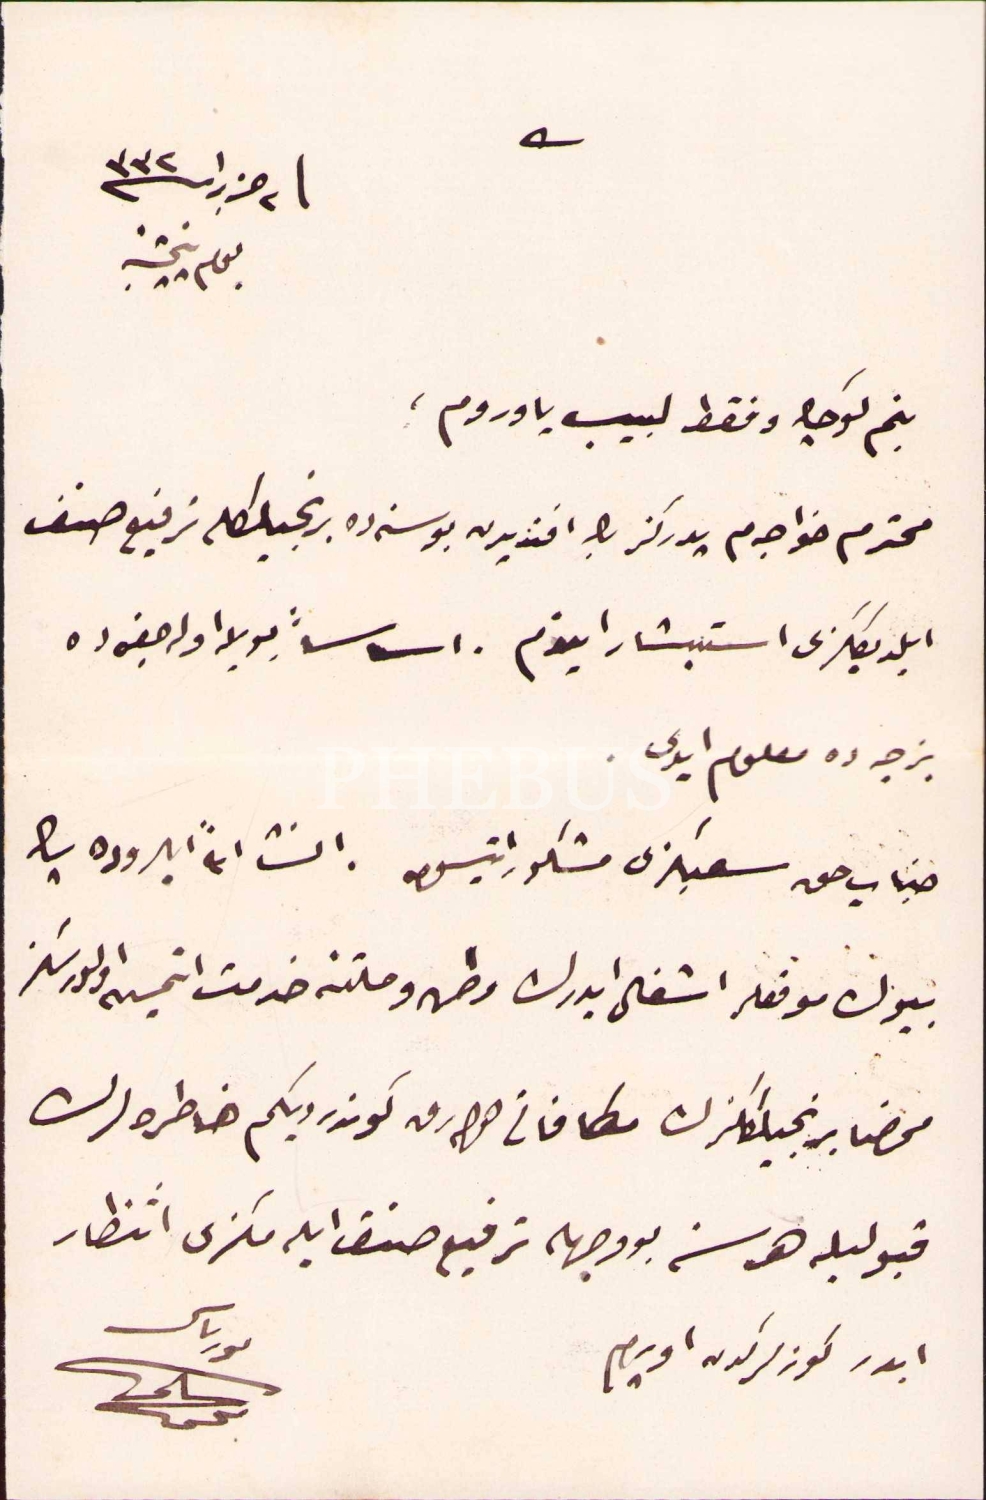 ٢ حزيران ٣٣٢
يوم پنجشنبه
بنم كوچك و فقط لبيب ياوروم ؛
محترم خواجه م پدركز بك افنديدن بو سنه ده برنجيلكله ترفيع صنف
ايلديككزى استبشار ايتدم . اساساً بويله اوله جغى ده
بزجه ده معلوم ايدى .
جناب حق سعيكزى مشكور ايتسون . انشاء الله ايلروده پك
بيوك موقعلر اشغال ايدرك وطن و ملتنه خدمت ايتمش اولورسكز
محضا برنجيلككزك مكافاتى اوله رق كوندرديكم خاطره لرك
قبوليله هر سنه بو وجهله ترفيع صنف ايله مكزى انتظار
ايدر كوزلركدن اوپرم
PHEBUS